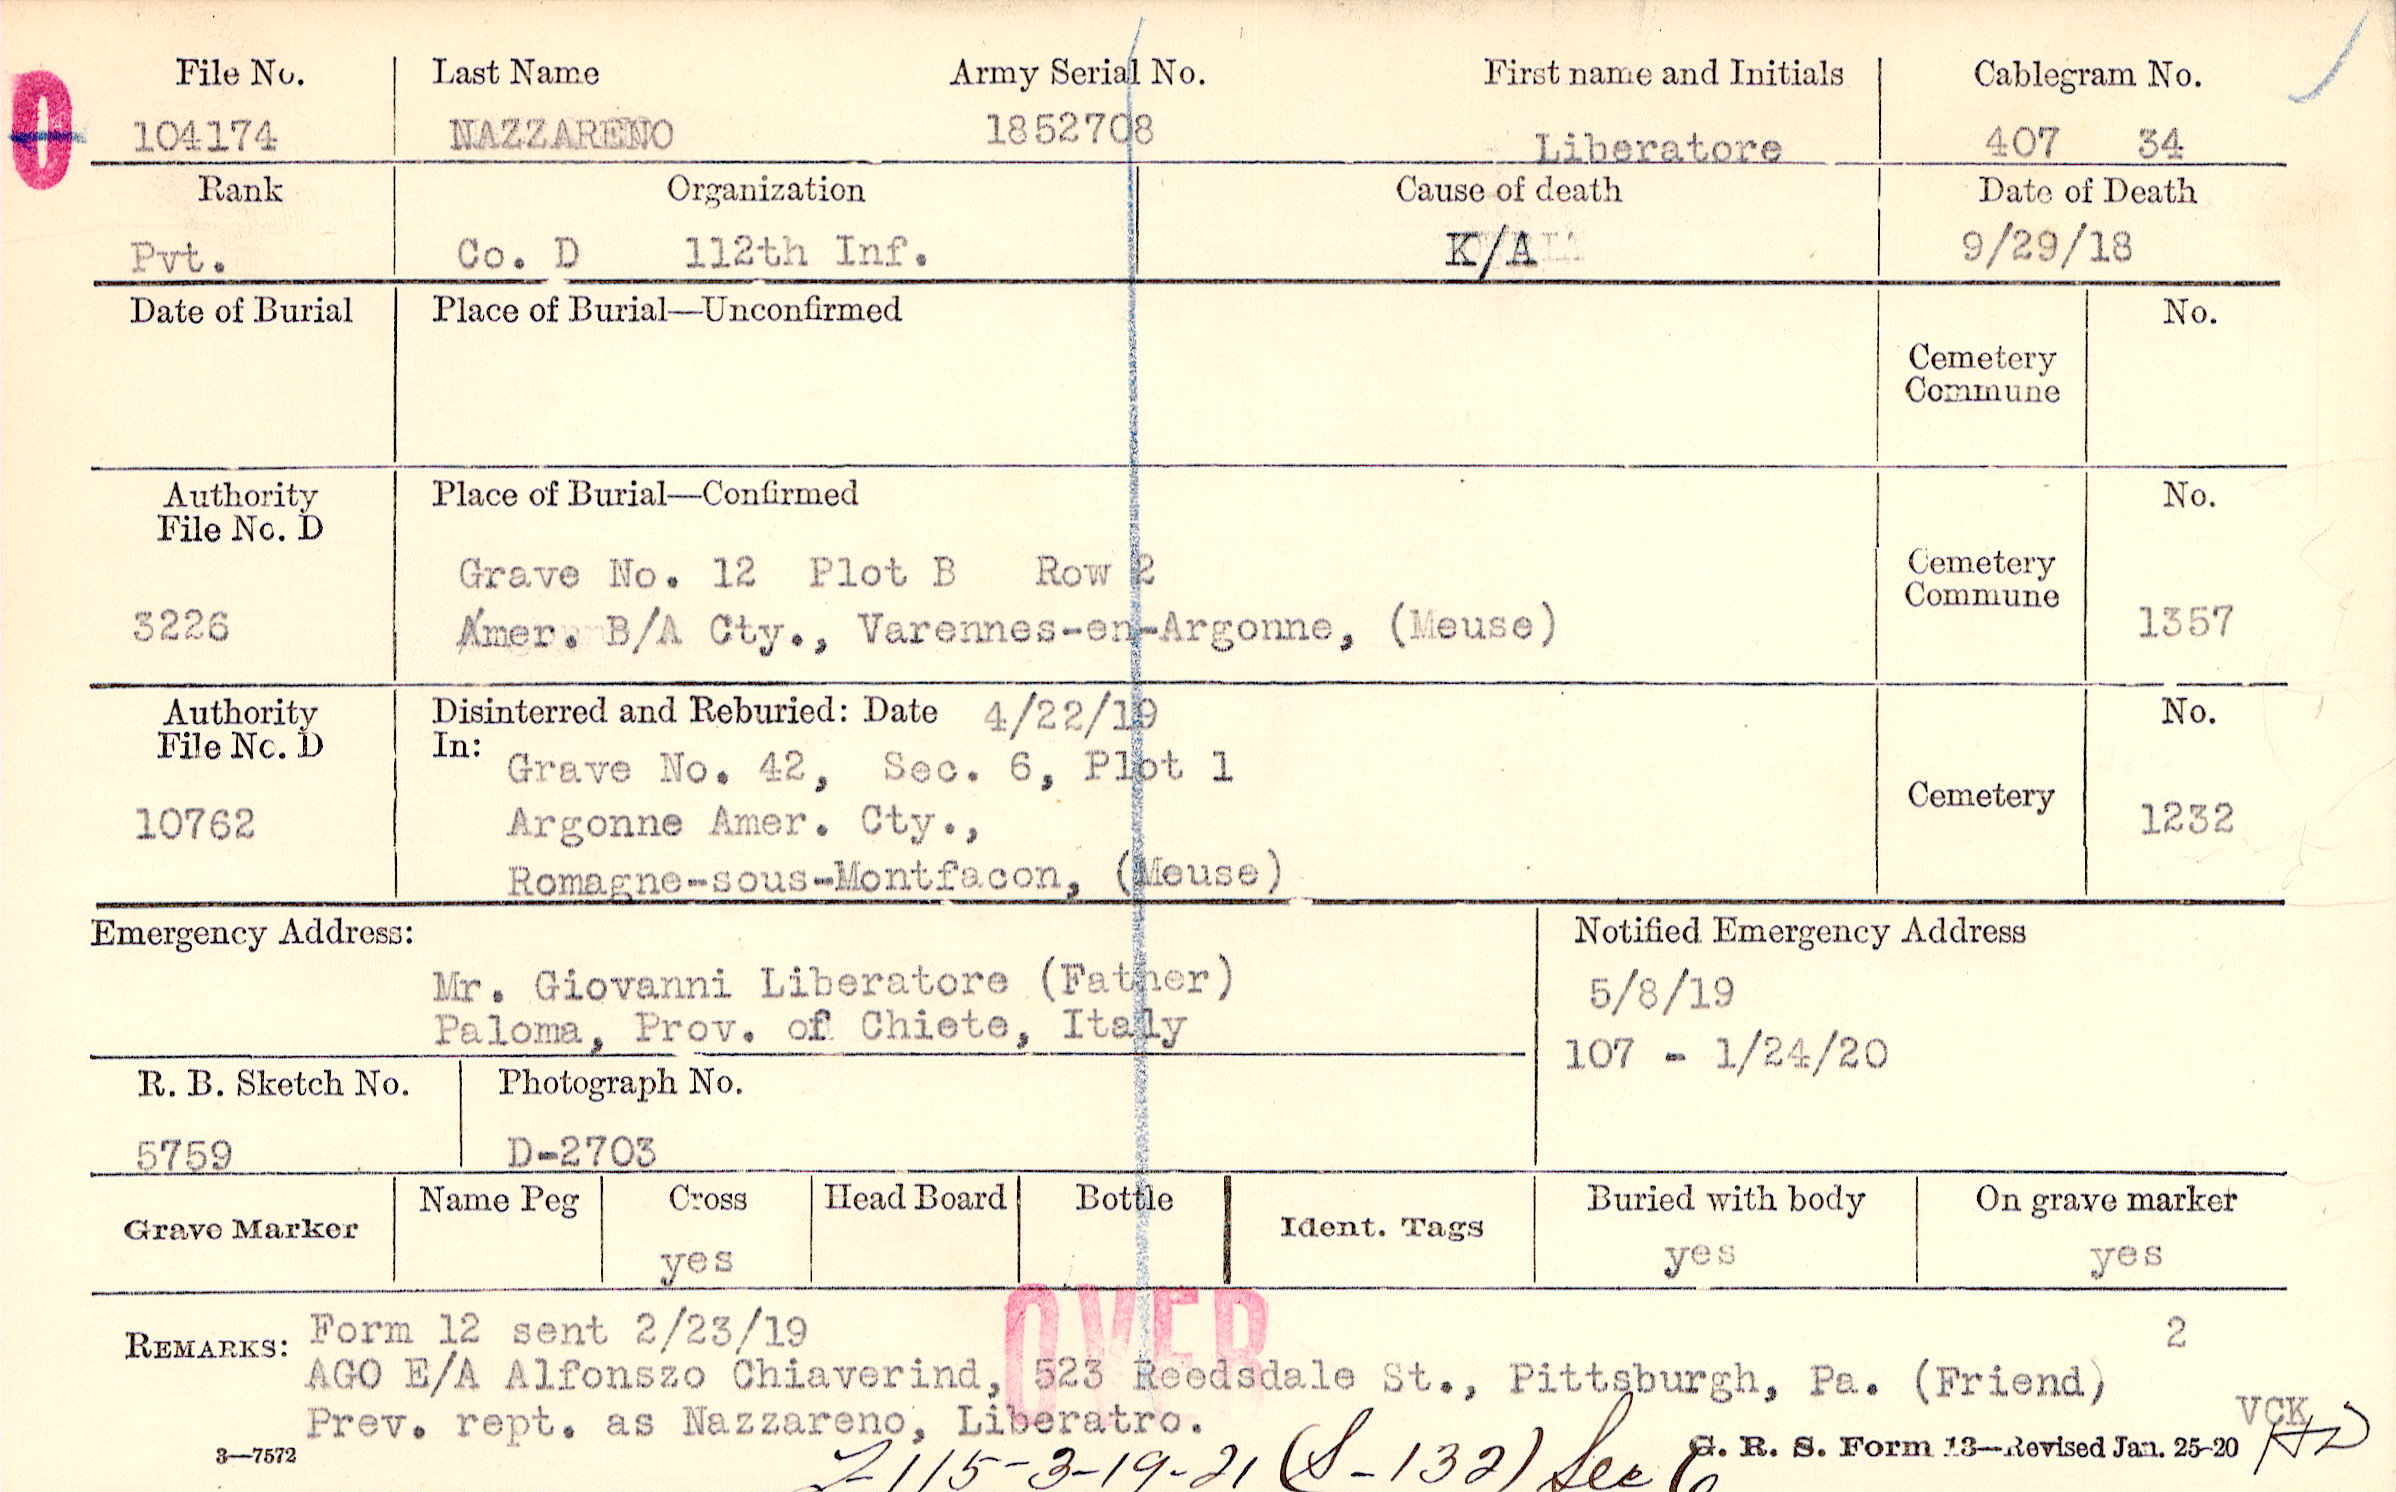 File No. Last Name Army Serial No. First name and Initials Cablegram No.
0
104174 NAZZARENO 1852708 Liberatore 407 34
Rank Organization Cause of death Date of Death
Pvt. Co. D 112th Inf. K/A 9/29/18
Date of Burial Place of Burial—Unconfirmed No.
Cemetery
Commune
Authority Place of Burial—Confirmed No.
File No. D
Grave No. 12 Plot B Row 2 Cemetery
Commune
3226 Amer. B/A Cty., Varennes-en-Argonne, (Meuse) 1357
Authority Disinterred and Reburied: Date 4/22/19 No.
File No. D In:
Grave No. 42, Sec. 6, Plot 1
10762 Argonne Amer. Cty., Cemetery 1232
Romagne-sous-Montfacon, (Meuse)
Emergency Address: Notified Emergency Address
Mr. Giovanni Liberatore (Father) 5/8/19
Paloma, Prov. of Chiete, Italy 107 - 1/24/20
R. B. Sketch No. Photograph No.
5759 D-2703
Grave Marker Name Peg Cross Head Board Bottle Ident. Tags Buried with body On grave marker
yes yes yes
OVER
REMARKS: Form 12 sent 2/23/19 2
AGO E/A Alfonszo Chiaverind, 523 Reedsdale St., Pittsburgh, Pa. (Friend)
Prev. rept. as Nazzareno, Liberatro. VCK
3—7572 G. R. S. Form 13—Revised Jan. 25-20
115-3-19-21 (S-132) See